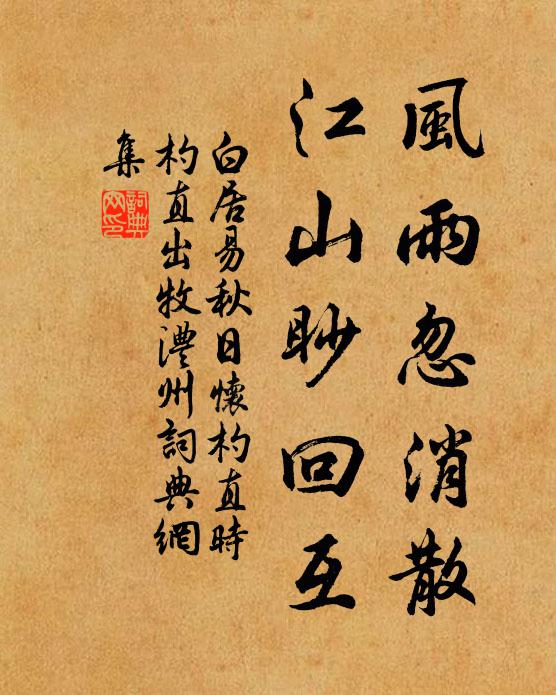 風雨忽消散
江山眇回互
白居易秋日懷杓直時
杓直出牧澧州詞典網
集
詞典网印